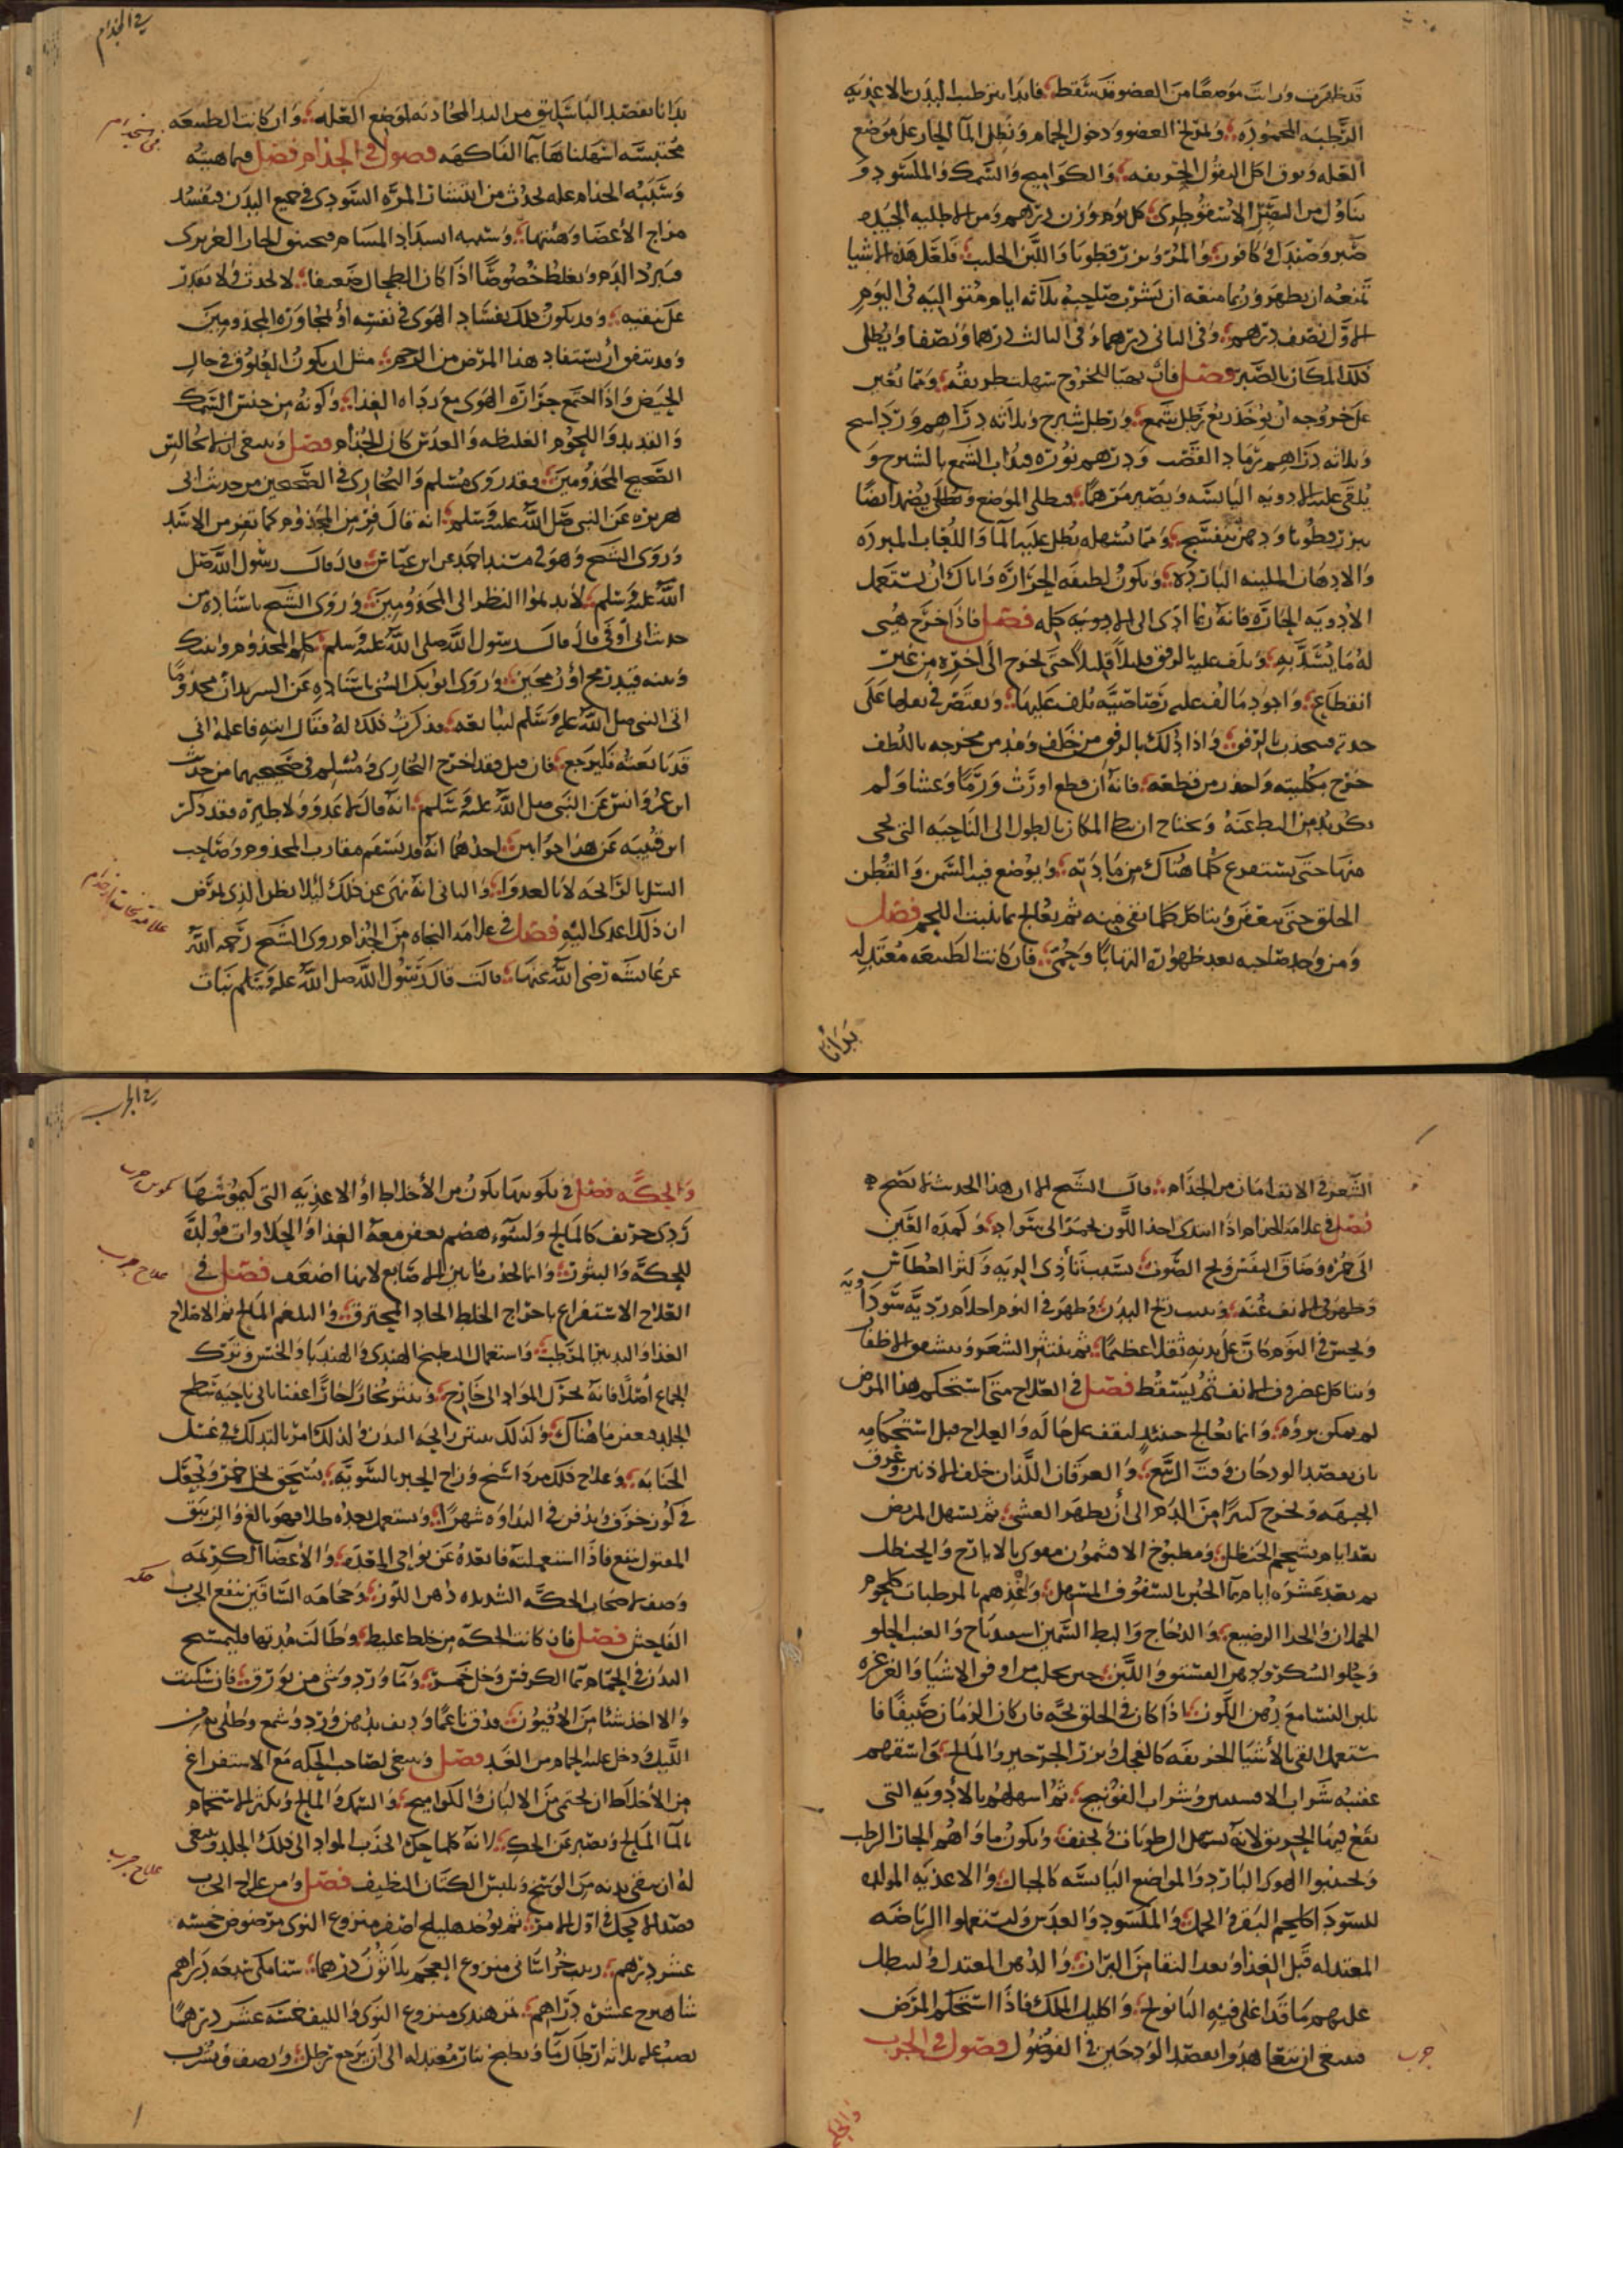 قد ظهرت ورات موضعًا من العضو قد تنقط فابدا بترطيب البدن بالاغذيه
المرطبه المحموده ولمزلخ العضو ودخول الحمام ونطل الما الحار على موضع
العله وتوق اكل البقول الحريفه والكواميح والسمك والملسود و
يتناول من الصبر الاسقوطري كل يوم وزن درهم ومن الاطليه الجيده
صبر وصندل وكافور والمر وبزرقطونا واللبن الحليب فلعل هذه الاشيا
تمنعه ان يظهر وربما منعه ان يشرب صاحبه ثلاثه ايام متواليه في اليوم
الاول نصف درهم وفي الثاني درهما وفي الثالث درهما ونصفا ويطلى
ذلك المكان بالصبر فصل فان تهيا للخروج سهلت طريقه ومما يعين
على خروجه ان يوخذ ربع رطل شمع ورطل شيرج وثلاثه دراهم مرداسنج
وثلاثه دراهم رماد القصب ودرهم نوره فيذاب الشمع بالشيرج و
يلقى عليه الادويه اليابسه ويصير مرهمًا فيطلى الموضع ويضمد ايضًا
ببزرقطونا ودهن بنفسج ومما يسهله نطل عليه الما واللعاب المبرده
والادهان الملينه البارده وتكون لطيفه الحراره واياك ان تستعمل
الادويه الحاره فانه ربما ادى الى فصل فاذا خرج هيى
له ما يشد به ويلف عليه بالرفق قليلاً قليلاً حتى يخرج الى اخره من غير
انقطاع واجود ما لف عليه رصاصيه يلف عليها ويقتصر في ثقلها على
جذبه فينجذب بالرفق واذا دلك بالرفق من خلف ومد من مخرجه باللطف
خرج بكليته واحذر من قطعه فانه ان قطع اورث ورمًا وعفنا ولم
يكن بد من البط عنه ويحتاج ان يبط المكان بالطول الى الناحيه التي يجي
منها حتى يستفرع كلما هناك من مادته ويوضع فيه السمن والقطن
الخلق حتى يتعفن ويتاكل كلما بقي فيه ثم يعالج بما ينبت اللحم فصل
ومن وجد صاحبه بعد ظهوره التهابًا وحمى فان كانت الطبيعه معتدله
بدانا
في الجذام
بدانا بفصد الباسليق من اليد المحاذيه لموضع العله وان كانت الطبيعه
محتبسه اسهلناها بما الفاكهه فصول في الجذام فصل في ماهيته
وسببه الجذام عله تحدث من انتشار المره السودا في جميع البدن فيفسد
مزاج الأعضا وهيئتها وسببه انسداد المسام فيختنق الحار الغريزي
فيبرد الدم ويغلظ خصوصًا اذا كان الطحال ضعيفا لا يجذب ولا يقدر
على تنقيه وقد يكون ذلك بفساد الهوى في نفسه أو لمجاوره المجذومين
وقد يتفق ان يستفاد هذا المرض من الرحم مثل ان يكون العلوق في حال
الحيض واذا اجتمع حراره الهوى مع رداه الغذا وكونه من جنس السمك
والقديد واللحوم الغليظه والعدس كان الجذام فصل وينبغي ان لا يجالس
الصحيح المجذومين فقد روى مسلم والبخاري في الصحيحين من حديث ابي
هريره عن النبي صلى الله عليه وسلم انه قال فر من المجذوم كما تفر من الاسد
وروى الشيخ وهو في مسند احمد عن ابن عباس قال قال رسول الله صلى
الله عليه وسلم لا تديموا النظر الى المجذومين وروى الشيخ باسناده من
حديث ابن ابي اوفى قال قال رسول الله صلى الله عليه وسلم كلم المجذوم وبينك
وبينه قيد رمح أو رمحين وروى ابو بكر السني باسناده عن الشريد ان مجذومًا
اتى النبي صلى الله عليه وسلم ليبايعه فذكرت ذلك له فقال ايته فاعلمه اني
قد بايعته فليرجع فان قيل فقد اخرج البخاري ومسلم في صحيحيهما من حديث
ابن عمر وانس عن النبي صلى الله عليه وسلم انه قال لا عدوى ولا طيره فقد ذكر
ابن قتيبه عن هذا جوابين احدهما انه قد يسقم مقارب المجذوم وصاحب
السل بالرائحه لا بالعدوا والثاني انه نهى عن ذلك لئلا يظن الذي يمرض
ان ذلك اعدى اليه فصل في علامه النجاه من الجذام روى الشيخ رحمه الله
عن عايشه رضي الله عنها قالت قال رسول الله صلى الله عليه وسلم نبات
الشعر في الانف امان من الجذام قال الشيخ الا ان هذا الحديث لا يصح
فصل في علامه الجذام اذا ابتدى اخذ اللون يحمر الى سواد وكمده العين
الى حمره وضاق النفس وبح الصوت بسبب تأذي الريه وكثر العطاس
وظهر في الانف غنه وظهر في النوم احلام رديه سوداويه
ويحس في النوم كان على بدنه ثقلا عظيمًا ثم ينتثر الشعر ويتشقق الاظفار
ويتاكل غضروف الانف ثم يسقط فصل في العلاج متى استحكم هذا المرض
لم يمكن بروه وانما يعالج حينئذ ليقف على حاله والعلاج قبل استحكامه
بان يفصد الودجان وقت الربيع والعرقان اللذان خلف الاذنين وعرق
الجبهه ويخرج كثيرًا من الدم الى أن يظهر الغشي ثم يسهل المريض
بعد ايام بشحم الحنظل ومطبوخ الافتيمون مقوى بالايارج والحنظل
ثم بعد عشره ايام بما الجبن بالسفوف المسهل واغذهم بالمرطبات كلحوم
الحملان والجدا الرضيع والدجاج والبط السمين اسفيدباج والعنب الحلو
وحلو السكر ودهن الفستق واللبن حين يحلب من اوفق الاشيا والغرغره
بلبن النسا مع دهن اللوز اذا كان في الحلق بحه فان كان الزمان صيفًا فا
ستعمل القي بالأشيا الحريفه كالفجل وبزر الجرجير والمالح واسقهم
عقيبه شراب الافسنتين وشراب الفوتنج ثم اسهلهم بالأدويه التي
يقع فيها الخربق لانه يسهل الرطوبات ويجفف ويكون ماواهم الحار الرطب
وليجتنبوا الهوى البارد والمواضع اليابسه كالجبال والاغذيه المولده
للسودا كلحم البقر والجمل والملكسود والعدس وليستعملوا الرياضه
المعتدله قبل الغذا وبعد النقا من البراز والدهن المعتدل وليبطل
عليهم ما قد اغلي فيه البابونج واكليل الملك فاذا استحكم المرض
فينبغي ان يتعاهدوا بفصد الودجين في الفصول فصول في الجرب
جرب
والحكه
في الجرب
والحكه فصل في تكوينها يكون من الأخلاط او الاغذيه التي كيموسها
ردي حريف كالمالح ولسوء هضم يعفن معه الغذا والحلاوات مولده
للحكه والبثور وانما تحدث فيما بين الاصابع لانها اضعف فصل في
علاج جرب
العلاج الاستفراع باخراج الخلط الحاد المحترق والبلغم المالح ثم الاصلاح
الغذا والتدبير المرطب واستعمال البطيخ الهندي والهندبا والخس وترك
الجماع اصلًا فانه يحرك المواد الى خارج ويثور بخارًا حارًا عفنا ياتي ناحيه سطح
الجلد فيعفن ما هناك وكذلك ينتن رايحه البدن ولذلك امر بالتدلك في غسل
الجنابه وعلاج ذلك مرداسنج وزاج الحبر بالسويه يسحق بخل خمر ويجعل
في كوز خزف ويدفن في النداوه شهرًا ويستعمل بعده طلا فهو بالغ والزيبق
المقتول ينفع فاذا استعملته فابعده عن نواحي المعده والأعضا الكريمه
حكه
وصفه لاصحاب الحكه الشديده دهن اللوز وحجامه الساقين ينفع الجرب
الفاحش فصل فان كانت الحكه من خلط غليظ وطالت مدتها فليمسح
البدن في الحمام بما الكرفس وخل خمر وما ورد وشي من بورق فان سكنت
والا اخذ شيئا من الافيون فدق ناعمًا وديف بدهن ورد وشمع وطلي به من
الليل ودخل عليه الحمام من الغد فصل وينبغي لصاحب الحكه مع الاستفراغ
من الأخلاط ان يحتمي من الالبان والكواميح والسمك والمالح ويكثر الاستحمام
بالما المالح ويصبر عن الحك لانه كلما حك انجذب المواد الى ذلك الجلد وينبغي
علاج جرب
له ان ينقي بدنه من الوسخ ويلبس الكتان النظيف فصل ومن علاج الجرب
فصد الاكحل في اول الامر ثم يوخذ هليلج اصفر منزوع النوى مرضوض خمسه
عشر درهم زبيب خراساني منزوع العجم ثلاثون درهما سنا مكي سبعه دراهم
شاهترج عشره دراهم تمر هندي منزوع النوى والليف خمسه عشر درهمًا
يصب عليه ثلاثه ارطال ما ويطبخ بنار معتدله الى ان يرجع رطل ونصف ويشرب